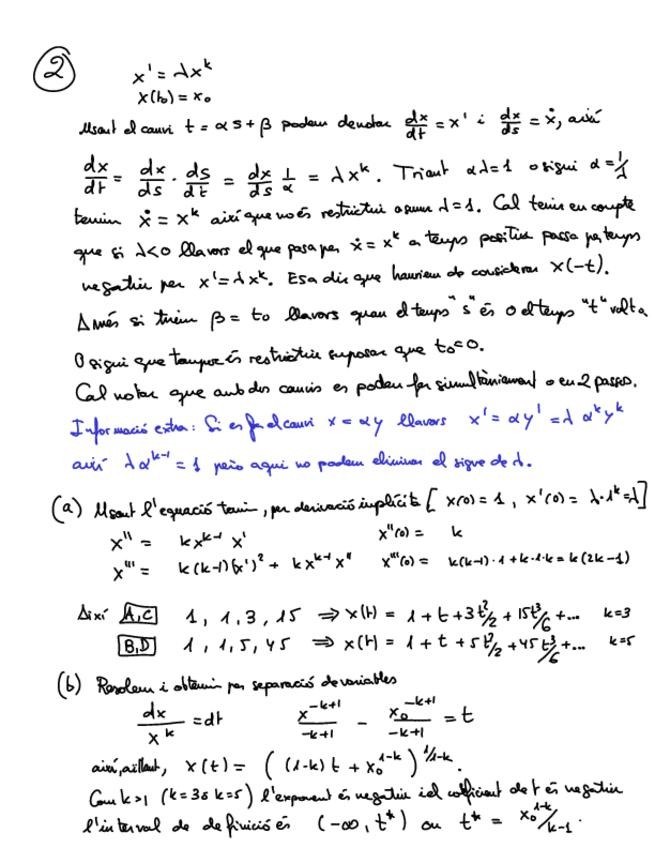 2 x' = λx^k
x(t₀) = x₀
Usant el canvi t = αs + β podem denotar dx/dt = x' i dx/ds = ẋ, així
dx/dt = dx/ds · ds/dt = dx/ds 1/α = λx^k. Triant αλ=1 o sigui α = 1/λ
tenim ẋ = x^k així que no és restrictiu asumir λ=1. Cal tenir en compte
que si λ<0 llavors el que passa per ẋ = x^k a temps positiu passa per temps
negatiu per x' = λx^k. Es a dir que hauriem de considerar x(-t).
A més si triem β = t₀ llavors quan el temps "s" és 0 el temps "t" val t₀.
O sigui que tampoc és restrictiu suposar que t₀=0.
Cal notar que amb dos canvis es poden fer simultàniament o en 2 passos.
Informació extra: Si es fa el canvi x = αy llavors x' = αy' = λ α^k y^k
així λα^{k-1} = 1 però aquí no podem eliminar el signe de λ.
(a) Usant l'equació tenim, per derivació implícita [x(0) = 1, x'(0) = λ·1^k = λ]
x'' = kx^{k-1} x' x''(0) = k
x''' = k(k-1)(x')² + kx^{k-1}x'' x'''(0) = k(k-1)·1+k·1·k = k(2k-1)
Així A,C 1, 1, 3, 15 ⇒ x(t) = 1 + t + 3t²/2 + 15t³/6 + ... k=3
B,D 1, 1, 5, 45 ⇒ x(t) = 1 + t + 5t²/2 + 45t³/6 + ... k=5
(b) Resolem i obtenim per separació de variables
dx/x^k = dt x^{-k+1}/-k+1 - x₀^{-k+1}/-k+1 = t
així, aïllant, x(t) = ((1-k)t + x₀^{1-k})^{1/1-k}.
Com k>1 (k=3 o k=5) l'exponent és negatiu i el coeficient de t és negatiu
l'interval de definició és (-∞, t*) on t* = x₀^{1-k}/k-1.